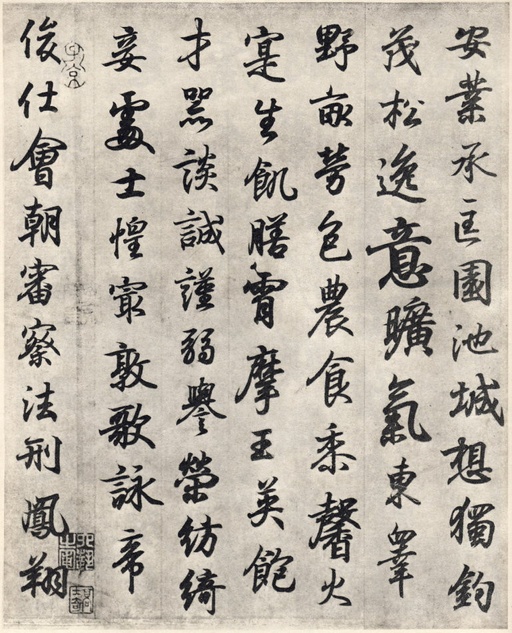 安業承匡園池城想獨鈞
茂松逸意曠氣東皋
野畝勞包農食黍馨火
寔生飢膳宵摩王英飽
才器談誠謹弱譽榮紡綺
妾處士惶寂敦歌詠帝
俊仕會朝審察法刑鳳翔
子京